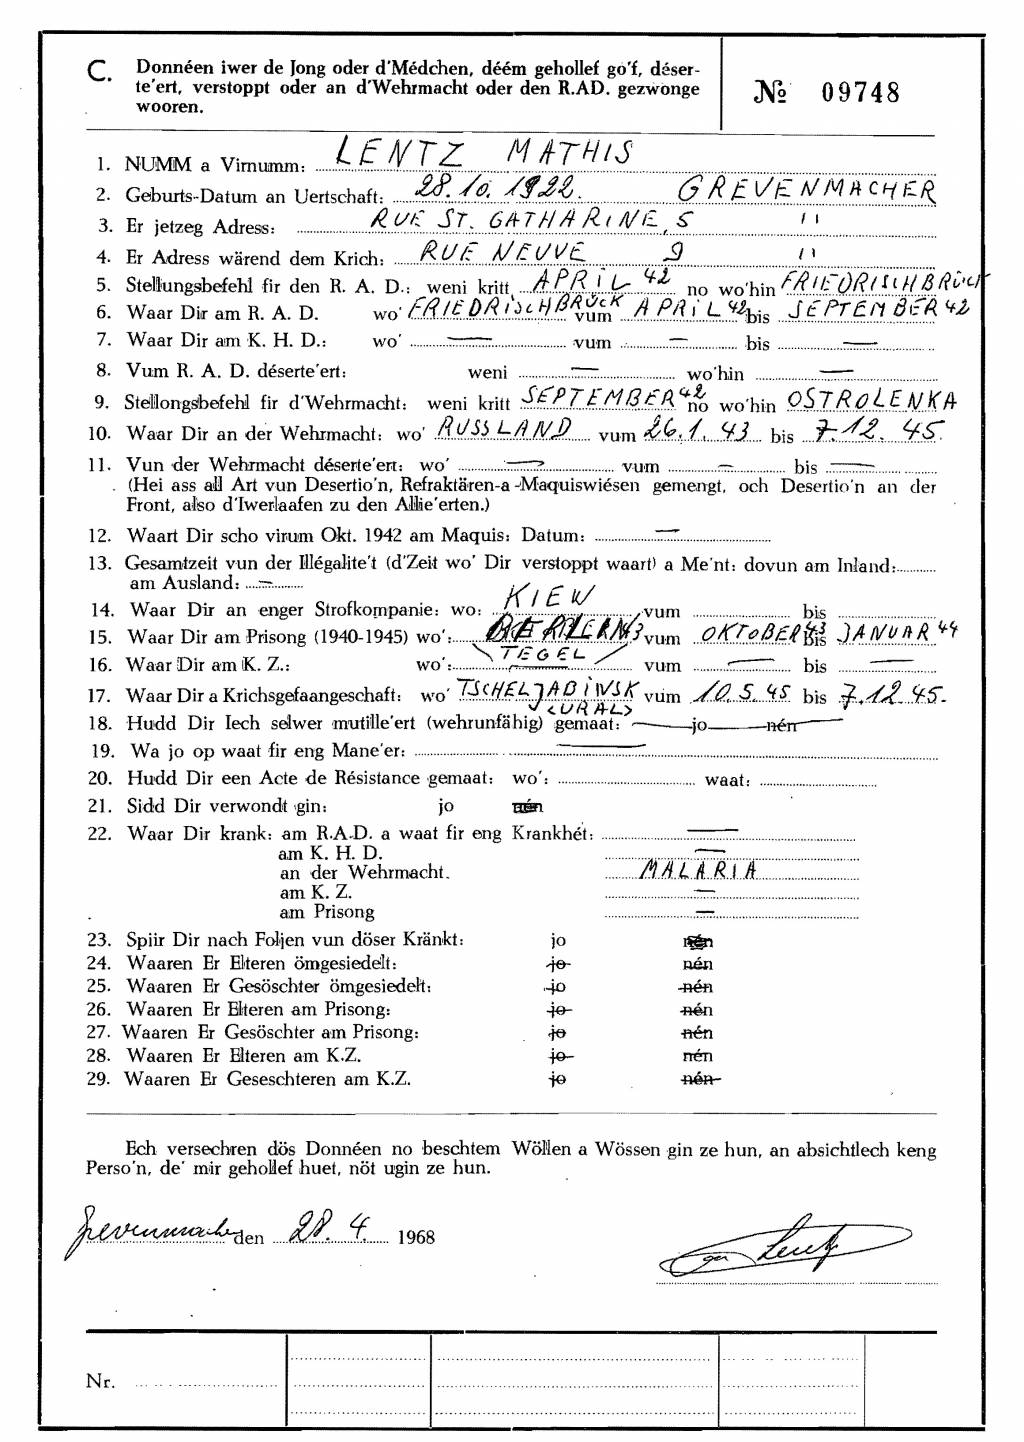 C. Donnéen iwer de Jong oder d'Médchen, déém gehollef go'f, déser-
te'ert, verstoppt oder an d'Wehrmacht oder den R.AD. gezwonge
wooren.
№ 09748
1. NUMM a Virnumm: LENTZ MATHIS
2. Geburts-Datum an Uertschaft: 28.10.1922. GREVENMACHER
3. Er jetzeg Adress: RUE ST. GATHARINE, 5 "
4. Er Adress wärend dem Krich: RUE NEUVE 9 "
5. Stellungsbefehl fir den R. A. D.: weni kritt APRIL 42 no wo'hin FRIEDRISCHBRÜCK
6. Waar Dir am R. A. D. wo' FRIEDRISCHBRÜCK vum APRIL 42 bis SEPTEMBER 42
7. Waar Dir am K. H. D.: wo' — vum — bis —
8. Vum R. A. D. déserte'ert: weni — wo'hin —
9. Stellongsbefehl fir d'Wehrmacht: weni kritt SEPTEMBER 42 no wo'hin OSTROLENKA
10. Waar Dir an der Wehrmacht: wo' RUSSLAND vum 26.1.43 bis 7.12.45.
11. Vun der Wehrmacht déserte'ert: wo' — vum — bis —
(Hei ass all Art vun Desertio'n, Refraktären-a-Maquiswiésen gemengt, och Desertio'n an der
Front, also d'Iwerlaafen zu den Allie'erten.)
12. Waart Dir scho virum Okt. 1942 am Maquis: Datum: —
13. Gesamtzeit vun der Illégalite't (d'Zeit wo' Dir verstoppt waart) a Me'nt: dovun am Inland:
am Ausland: —
14. Waar Dir an enger Strofkompanie: wo: KIEW vum bis
15. Waar Dir am Prisong (1940-1945) wo': BERLIN vum OKTOBER 43 bis JANUAR 44
TEGEL
16. Waar Dir am K. Z.: wo': — vum — bis —
17. Waar Dir a Krichsgefaangeschaft: wo' TSCHELJABINSK vum 10.5.45 bis 7.12.45.
<URAL>
18. Hudd Dir Iech selwer mutille'ert (wehrunfähig) gemaat: — jo — nén
19. Wa jo op waat fir eng Mane'er: —
20. Hudd Dir een Acte de Résistance gemaat: wo': waat:
21. Sidd Dir verwondt gin: jo nén
22. Waar Dir krank: am R.A.D. a waat fir eng Krankhét: —
am K. H. D. —
an der Wehrmacht. MALARIA
am K. Z. —
am Prisong —
23. Spiir Dir nach Foljen vun döser Kränkt: jo nén
24. Waaren Er Elteren ömgesiedelt: jo nén
25. Waaren Er Gesöschter ömgesiedelt: jo nén
26. Waaren Er Elteren am Prisong: jo nén
27. Waaren Er Gesöschter am Prisong: jo nén
28. Waaren Er Elteren am K.Z. jo nén
29. Waaren Er Geseschteren am K.Z. jo nén
Ech versechren dös Donnéen no beschtem Wöllen a Wössen gin ze hun, an absichtlech keng
Perso'n, de' mir gehollef huet, nöt ugin ze hun.
Grevenmacher den 28.4. 1968
Lentz
Nr.